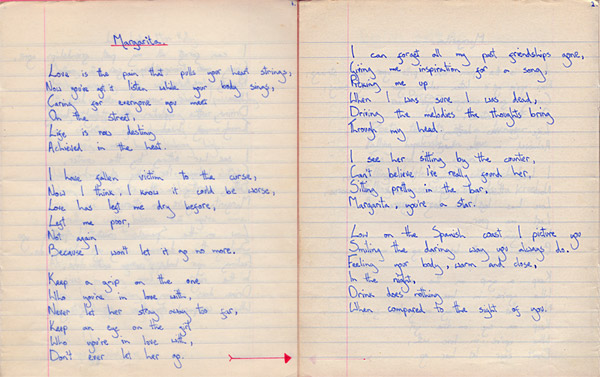 1.
Margarita.
Love is the pain that pulls your heart strings,
Now you've got listen while your body sings,
Caring for everyone you meet
On the street,
Life is now destiny
Achieved in the heat.
I have fallen victim to the curse,
Now I think, I know it could be worse,
Love has left me dry before,
Left me poor,
Not again
Because I won't let it go no more.
Keep a grip on the one
Who you're in love with,
Never let her stray away too far,
Keep an eye on the girl
Who you're in love with,
Don't ever let her go.
2.
I can forget all my past friendships gone,
Giving me inspiration for a song,
Picking me up
When I was sure I was dead,
Driving the melodies the thoughts bring
Through my head.
I see her sitting by the counter,
Can't believe I've really found her,
Sitting pretty in the bar,
Margarita, you're a star.
Low on the Spanish coast I picture you
Smiling the daring way you always do.
Feeling your body, warm and close,
In the night,
Drink does nothing
When compared to the sight of you.